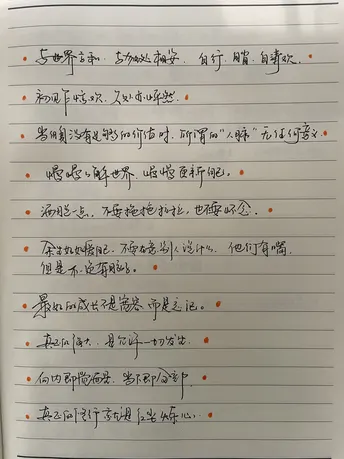 与世界言和，与万物相安，自行，自省，自喜欢。
初见乍惊欢，久处亦怦然。
当你自己没有足够的价值时，所谓的“人脉”无任何意义
慢慢了解世界，慢慢更新自己。
洒脱一点，不要拖拖拉拉，也不要怀念。
余生好好爱自己，不要在意别人说什么，他们有嘴，
但是不一定有脑子。
最好的成长不是宽容而是忘记。
真正的强大，是允许一切发生
向内即是，当下即全部
真正的修行就是红尘炼心